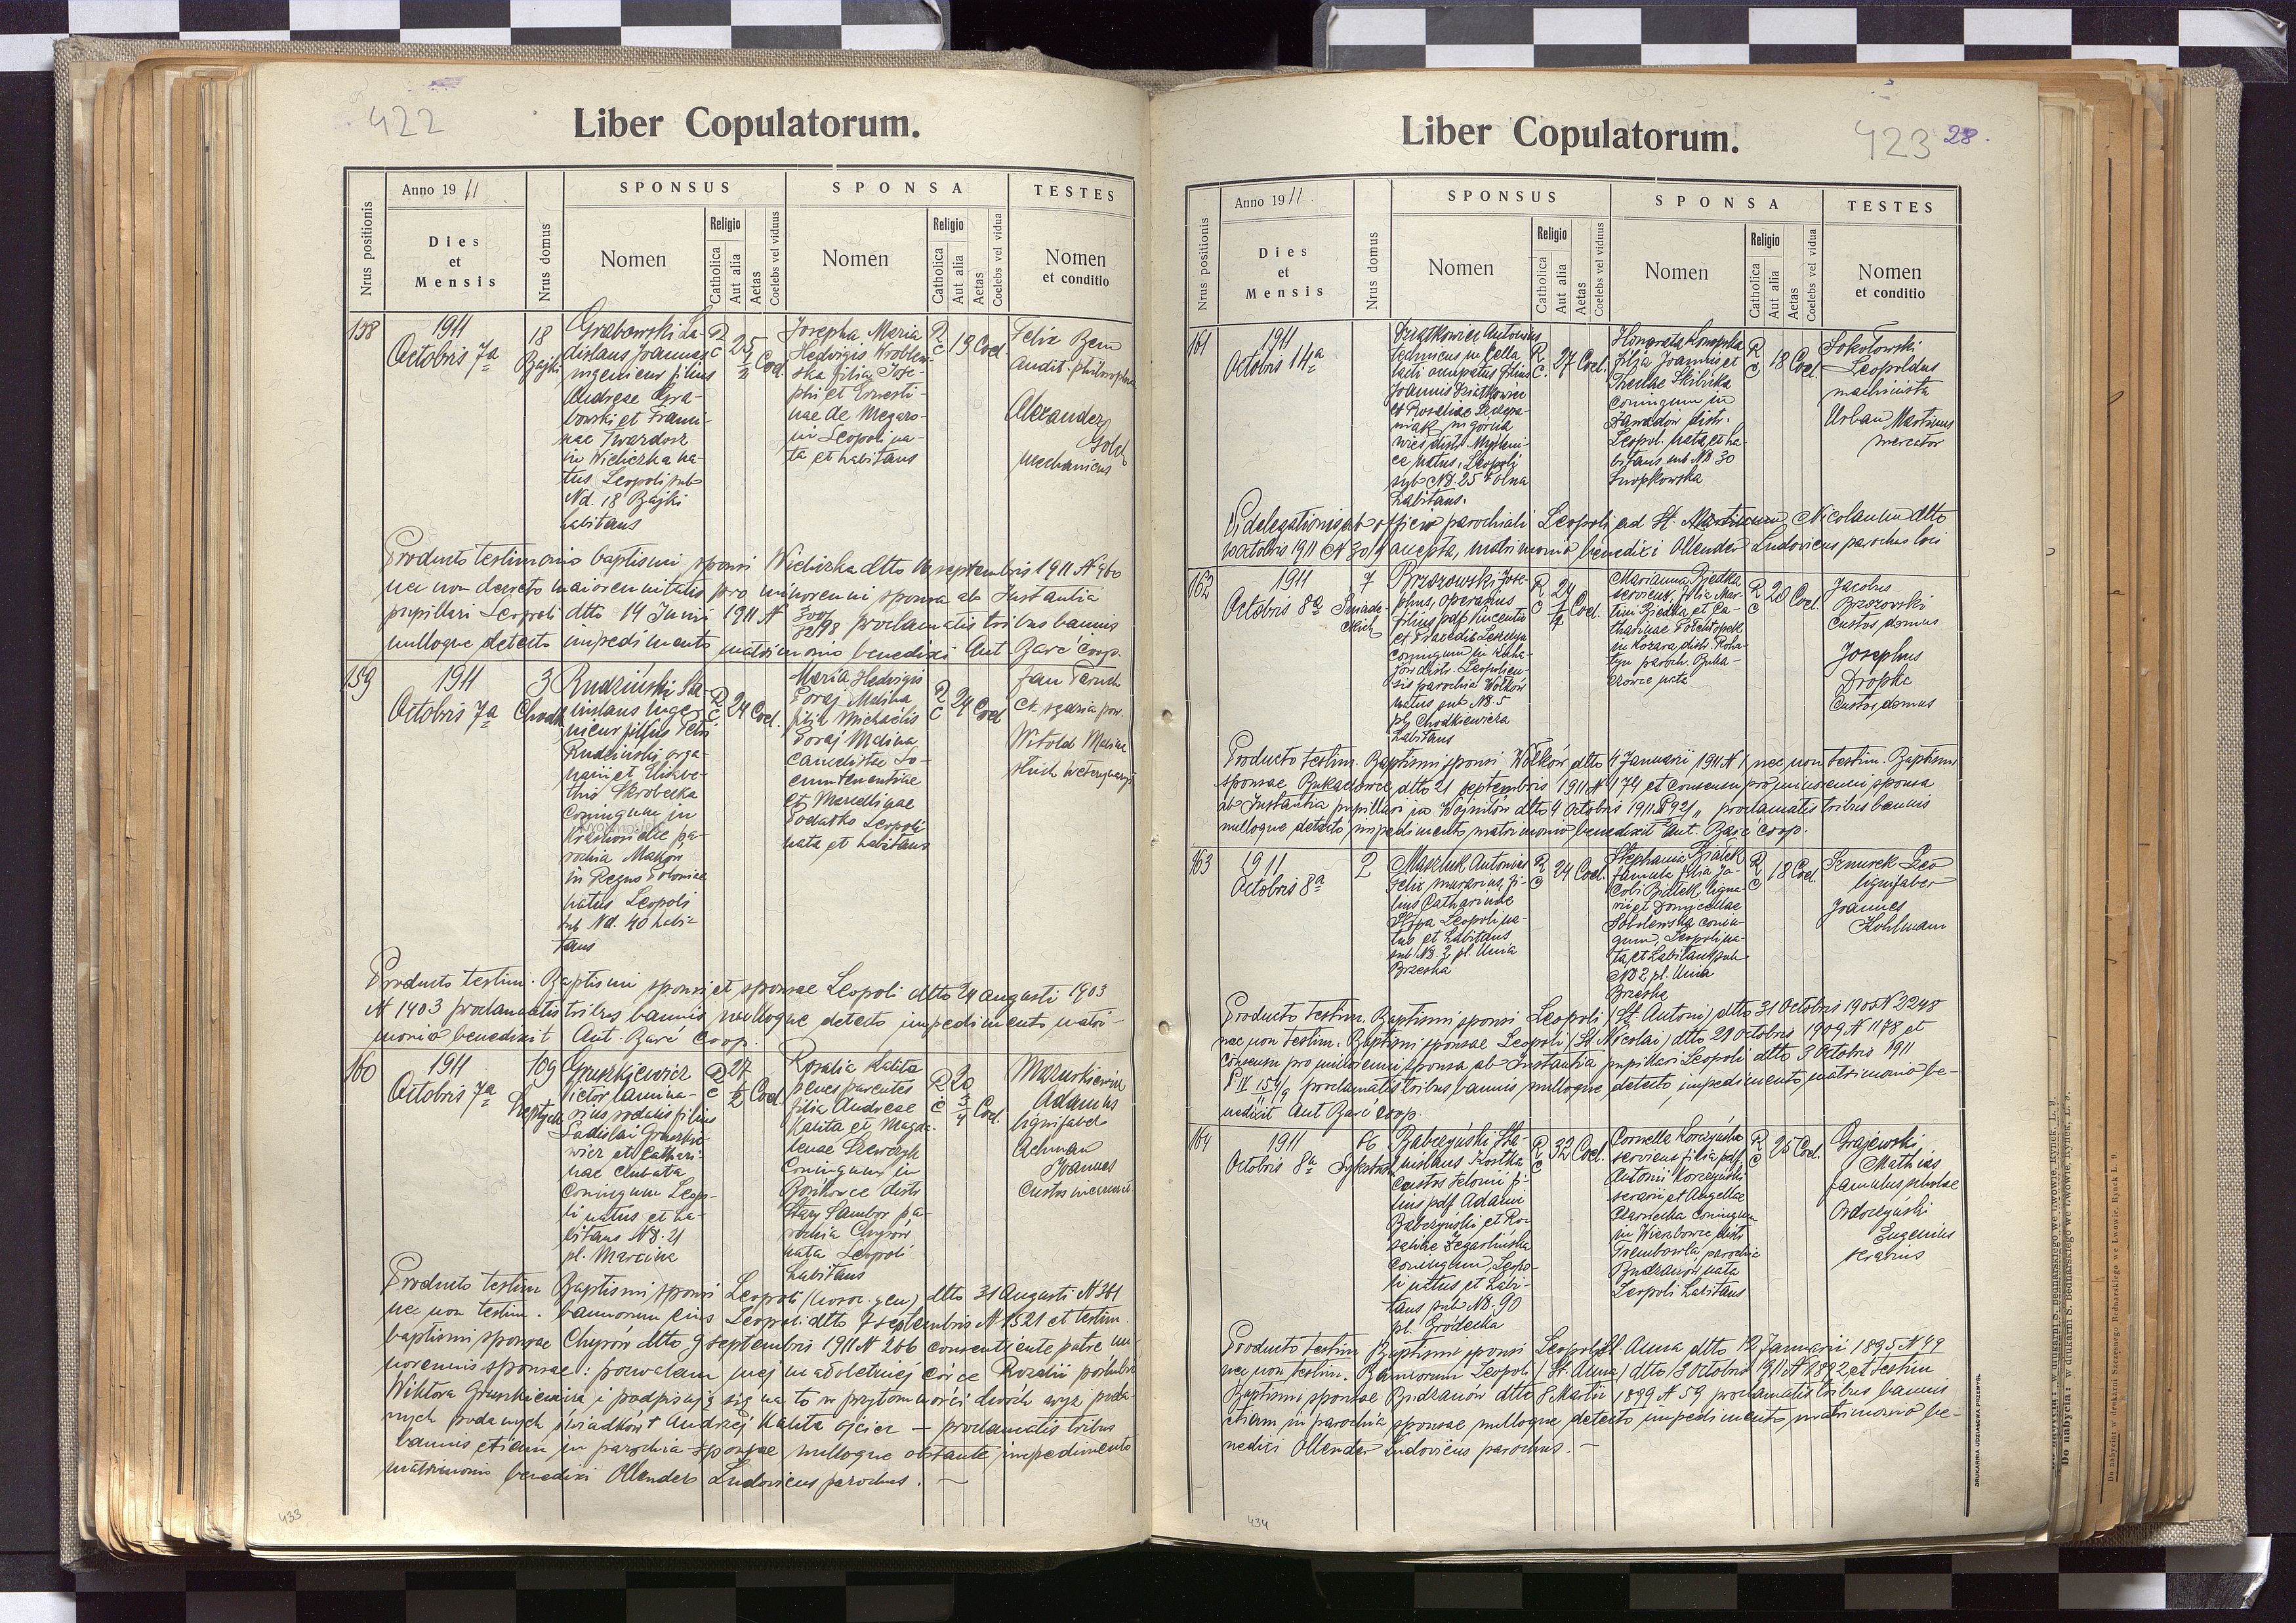 422
Liber Copulatorum.
Nrus positionis
Anno 1911
Dies
et
Mensis
Nrus domus
SPONSUS
Nomen
Religio
Catholica
Aut alia
Aetas
Coelebs vel viduus
SPONSA
Nomen
Religio
Catholica
Aut alia
Aetas
Coelebs vel vidua
TESTES
Nomen
et conditio
158
1911
Octobris 7a
18
Bajki
Grabowski La-
dislaus Joannes
ingenieur filius
Andreae Gra-
bowski et Franci-
nae Twardosz
in Wieliczka na-
tus Leopoli sub
Nd. 18 Bajki
habitans
R
c
25
1/2
Coel.
Josepha Maria
Hedvigis Wroblew-
ska filia Jose-
phi et Ernesti-
nae de Megaro-
in Leopoli na-
ta et habitans
R
c
19 Coel.
Felix Bem
audit. philosophiae
Alexander
Golch
mechanicus
Producto testimonio baptismi sponsi Wieliczka dtto septembris 1911 N 960
nec non decreto maiorennitatis pro minorenni sponsa ab Instantia
pupillari Leopoli dtto 14 Junii 1911 N proclamatis tribus bannis
nulloque detecto impedimento matrimonio benedixi Ant. Barć coop.
159
1911
Octobris 7a
3
Rudziński Sta-
nislaus inge-
nieur filius Petri
Rudziński orga-
narii et Elisabe-
this Skrobecka
coniugum in
Krasnosielc pa-
rochia Maków
in Regno Poloniae
natus Leopoli
sub Nd. 40 habi-
tans
R
c.
24 Coel.
Maria Hedvigis
Poraj Malina
filia Michaelis
Poraj Malina
cancelistae Lo-
cumtenentiae
et Marcellinae
Podatko Leopoli
nata et habitans
R
c
24 Coel
Jan Taruch
Witold Malina
słuch weterynaryi
Producto testim. Baptismi sponsi et sponsae Leopoli dtto 24 augusti 1903
N 1403 proclamatis tribus bannis nulloque detecto impedimento matri-
monio benedixit Ant. Barć coop.
160
1911
Octobris 7a
109
Gruszkiewicz
Victor lamina-
rius sodalis filius
Ladislai Gruszkie-
wicz et Cathari-
nae Chubata
coniugum Leopo-
li natus et ha-
bitans Nd. 21
pl. Marcina
R
c
27
1/2
Coel.
Rosalia Kalita
penes parentes
filia Andreae
Kalita et Magda-
lenae Szewczyk
coniugum in
Bonkowce distr
Stary Sambor pa-
rochia Chyrów
nata Leopoli
habitans
R
c
20
3/4
Coel.
Mazurkiewicz
Adamus
lignifaber
Achman
Joannes
Custos
Producto testim Baptismi sponsi Leopoli dtto 31 Augusti N 361
nec non testim. bannorum eius Leopoli dtto 7 septembris N 1521 et testim.
baptismi sponsae Chyrów dtto 9 septembris 1911 N 266 consentiente patre mi-
norennis sponsae: pozwalam mej małoletniej córce Rozalii poślubić
Wiktora Gruszkiewicza i podpisuję się na to w przytomności dwóch wyż poda-
nych podanych świadków + Andrzej Kalita ojciec — proclamatis tribus
bannis etiam in parochia sponsae nulloque obstante impedimento
matrimonio benedixi Ollender Ludovicus parochus. —
433
423
28.
Liber Copulatorum.
Nrus positionis
Anno 1911
Dies
et
Mensis
Nrus domus
SPONSUS
Nomen
Religio
Catholica
Aut alia
Aetas
Coelebs vel viduus
SPONSA
Nomen
Religio
Catholica
Aut alia
Aetas
Coelebs vel vidua
TESTES
Nomen
et conditio
161
1911
Octobris 14a
Dziatkowicz Antonius
technicus in cella
lacti occupatus filius
Joannis Dziatkowicz
et Rosaliae Szczepa-
niak in górna
wieś distr. Myśleni-
ce natus, Leopoli
sub Nd. 25 Polna
habitans.
R
C.
27 Coel.
Honorata Konopka
filia Joannis et
Theclae Skibicka
coniugum in
Zawadów distr.
Leopol. nata et ha-
bitans sub Nd 30
Snopkowska
R
c
18 Coel.
Sokołowski
Leopoldus
machinista
Urban Martinus
mercator
Vi delegationis ab officio parochiali Leopoli ad St. Nicolaum dtto
octobris 1911 N 30/4 accepta, matrimonio benedixi Ollender Ludovicus parochus loci
162
1911
Octobris 8a
7
Brzozowski Jose-
phus, operarius
filius pdf Vincentii
et Praxedis
coniugum in
distr. Leopolien-
sis parochia Wołków
natus sub Nd. 5
pl. Chodkiewicza
habitans
R
c
24
1/2
Coel.
Marianna Bjedka
serviens, filia Mar-
tini Bjedka et Ca-
tharinae
in Kozara distr. Roha-
tyn paroch. Buka-
czowce nata
R
c
20 Coel.
Jacobus
Brzozowski
Custos domus
Josephus
Dropka
Custos domus
Producto testim. Baptismi sponsi Wołków dtto 4 Januarii 1911 N 1 nec non testim. Baptismi
sponsae Bukaczowce dtto 21 septembris 1911 N 174 et consensu pro minorenni sponsa
ab Instantia pupillari in Wojniłów dtto 4 octobris 1911 proclamatis tribus bannis
nulloque detecto impedimento matrimonio benedixit Ant. Barć coop.
163
1911
Octobris 8a
2
Maszluk Antonius
Felix murarius, fi-
lius Catharinae
Stopa Leopoli na-
tus et habitans
sub Nd. 2 pl. Unia
Brzeska
R
c
24 Coel.
Stephania Bjalek
famula filia Ja-
cobi Bjalek ligna-
rii et Domicellae
Sobolewska coniu-
gum, Leopoli na-
ta et habitans sub
Nd 2 pl. Unia
Brzeska
R
c
18 Coel.
Sznurek Leo
lignifaber
Joannes
Kohlmann
Producto testim. Baptismi sponsi Leopoli (St. Antoni) dtto 31 Octobris 1905 N 2248
nec non testim. Baptismi sponsae Leopoli (St. Nicolai) dtto 20 octobris 1909 N 1178 et
consensu pro minorenni sponsa ab Instantia pupillari Leopoli dtto 3 Octobris 1911
proclamatis tribus bannis nulloque detecto impedimento matrimonio be-
nedixit Ant Barć coop.
164
1911
Octobris 8a
Babczyński Sta-
nislaus Kostka
custos telonii fi-
lius pdf Adami
Babczyński et Ro-
saliae Żegarlińska
coniugum, Leopo-
li natus et habi-
tans sub Nd. 90
pl. Grodecka
R
c
32 Coel.
Cornelia Korczyńska
serviens filia pdf.
Antonii Korczyński
serarii et Angelae
Czarnecka coniugum
in Wierzbowce distr
Trembowla, parochia
Budzanów nata
Leopoli habitans
R
c
25 Coel.
Grajewski
Mathias
famulus scholae
Ordoczyński
Eugenius
serarius
Producto testim Baptismi sponsi Leopoli St. Anna dtto 12 Januarii 1895 N 49
nec non testim. Bannorum Leopoli (St. Anna) dtto 3 octobris 1911 N 1892 et testim
Baptismi sponsae Budzanów dtto 8 Martii 1899 N 59 proclamatis tribus bannis
etiam in parochia sponsae nulloque detecto impedimento matrimonio be-
nedixi Ollender Ludovicus parochus. —
434
DRUKARNIA UDZIAŁOWA PRZEMYŚL
Do nabycia: w drukarni S. Bednarskiego we Lwowie, Rynek, L. 9.
Do nabycia w drukarni Szczęsnego Bednarskiego we Lwowie, Rynek L. 9.